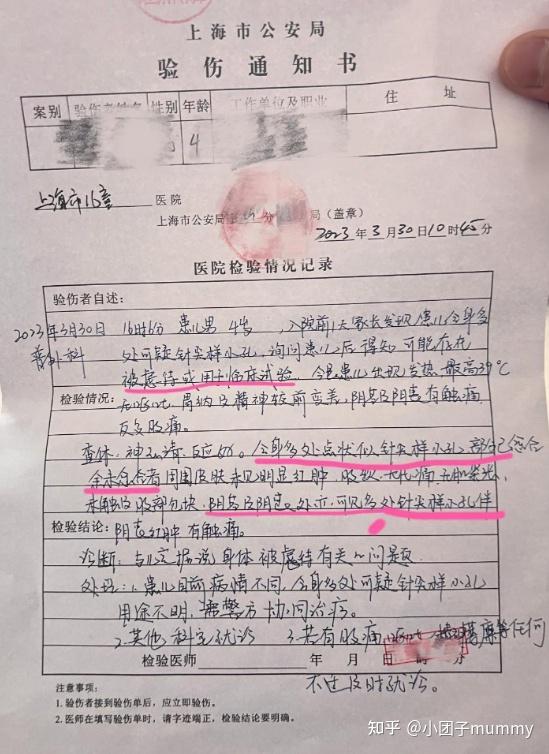 上海市公安局
验伤通知书
案别 验伤者姓名 性别 年龄 工作单位及职业 住址
4
上海市儿童 医院
上海市公安局 分局(盖章)
2023年3月30日10时45分
医院检验情况记录
验伤者自述:
2023年3月30日 16时6分 患儿男 4岁 ,入院前1天家长发现患儿全身多
普外科 处可疑针尖样小孔,询问患儿后得知可能存在
被虐待或用于临床试验。今患儿出现发热,最高39℃
检验情况: 胃纳及精神较前变差,阴茎及阴囊有触痛
反复腹痛。
查体:神志清,反应好。全身多处点状似针尖样小孔,部分已愈合
余未愈合者周围皮肤未见明显红肿,腹软,无
未触及腹部包块,阴茎及阴囊处亦可见多处针尖样小孔伴
检验结论: 阴茎红肿 有触痛。
诊断:与依据说身体被虐待有关的问题
处理:1.患儿目前病情不同,全身多处可疑针尖样小孔
用途不明,需警方协同治疗。
2.其他科室就诊 3.若有腹痛 等任何
检验医师 年 月 日 时 分
不适及时就诊。
注意事项:
1. 验伤者接到验伤单后,应立即验伤。
2. 医师在填写验伤单时,请字迹端正,检验结论要明确。
知乎 @小团子mummy